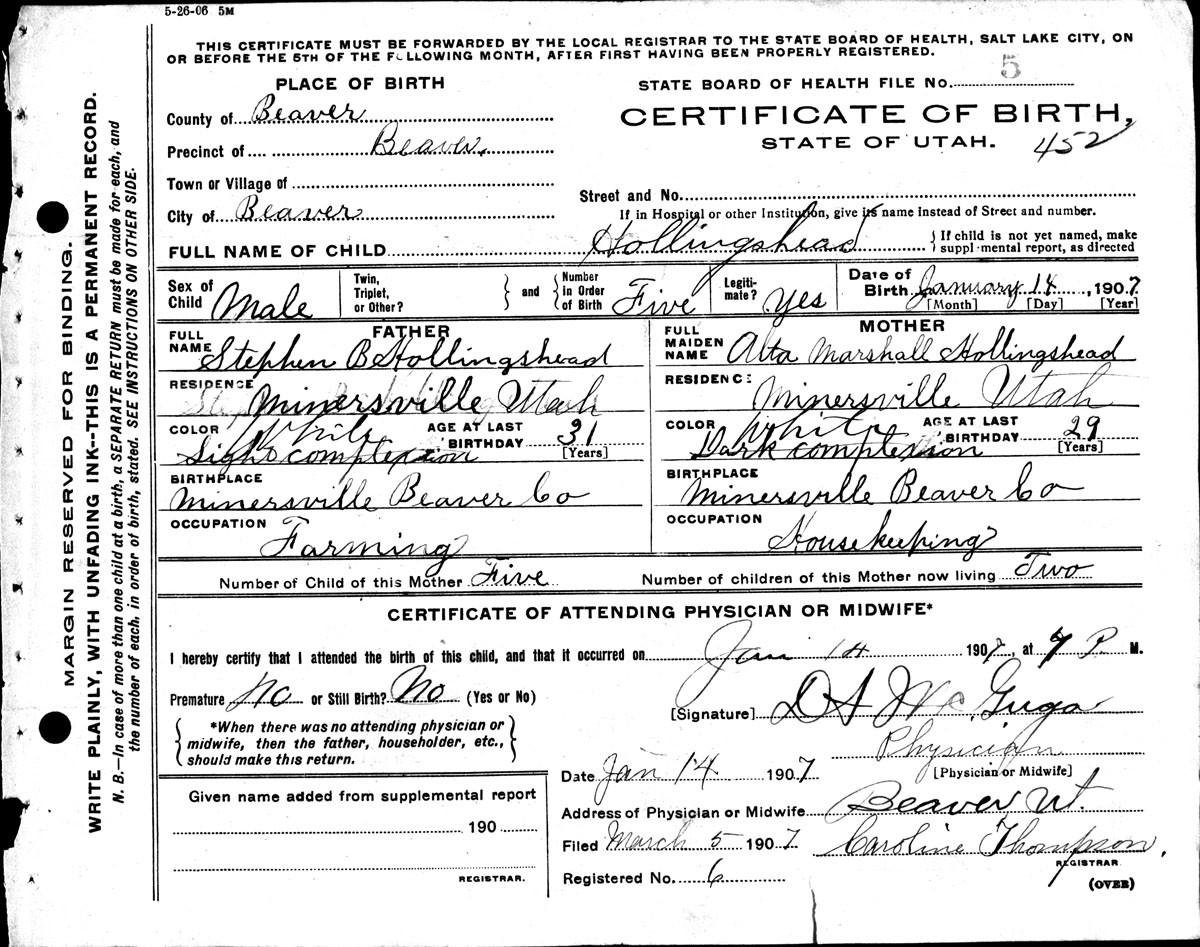 5-26-06 5M
THIS CERTIFICATE MUST BE FORWARDED BY THE LOCAL REGISTRAR TO THE STATE BOARD OF HEALTH, SALT LAKE CITY, ON
OR BEFORE THE 5TH OF THE FOLLOWING MONTH, AFTER FIRST HAVING BEEN PROPERLY REGISTERED.
MARGIN RESERVED FOR BINDING.
WRITE PLAINLY, WITH UNFADING INK--THIS IS A PERMANENT RECORD.
N. B.—In case of more than one child at a birth, a SEPARATE RETURN must be made for each, and
the number of each, in order of birth, stated. SEE INSTRUCTIONS ON OTHER SIDE.
PLACE OF BIRTH
County of Beaver
Precinct of Beaver
Town or Village of
City of Beaver
STATE BOARD OF HEALTH FILE No. 5
CERTIFICATE OF BIRTH,
STATE OF UTAH. 452
Street and No.
If in Hospital or other Institution, give its name instead of Street and number.
FULL NAME OF CHILD Hollingshead
If child is not yet named, make
suppl mental report, as directed
Sex of Child Male
Twin, Triplet, or Other? and Number in Order of Birth Five
Legiti-mate? Yes
Date of Birth January 14, 1907
[Month] [Day] [Year]
FATHER
FULL NAME Stephen B Hollingshead
RESIDENCE Minersville Utah
COLOR White AGE AT LAST BIRTHDAY 31
[Years]
Light complexion
BIRTHPLACE
Minersville Beaver Co
OCCUPATION
Farming
MOTHER
FULL MAIDEN NAME Alta Marshall Hollingshead
RESIDENCE
Minersville Utah
COLOR White AGE AT LAST BIRTHDAY 29
[Years]
Dark complexion
BIRTHPLACE
Minersville Beaver Co
OCCUPATION
Housekeeping
Number of Child of this Mother Five Number of children of this Mother now living Two
CERTIFICATE OF ATTENDING PHYSICIAN OR MIDWIFE*
I hereby certify that I attended the birth of this child, and that it occurred on Jan 14 1907, at 7 P. M.
Premature No or Still Birth? No (Yes or No)
*When there was no attending physician or
midwife, then the father, householder, etc.,
should make this return.
[Signature]
Physician
[Physician or Midwife]
Date Jan 14 1907
Address of Physician or Midwife Beaver Ut.
Filed March 5 1907 Caroline Thompson,
REGISTRAR
Registered No. 6
(OVER)
Given name added from supplemental report
190
REGISTRAR.